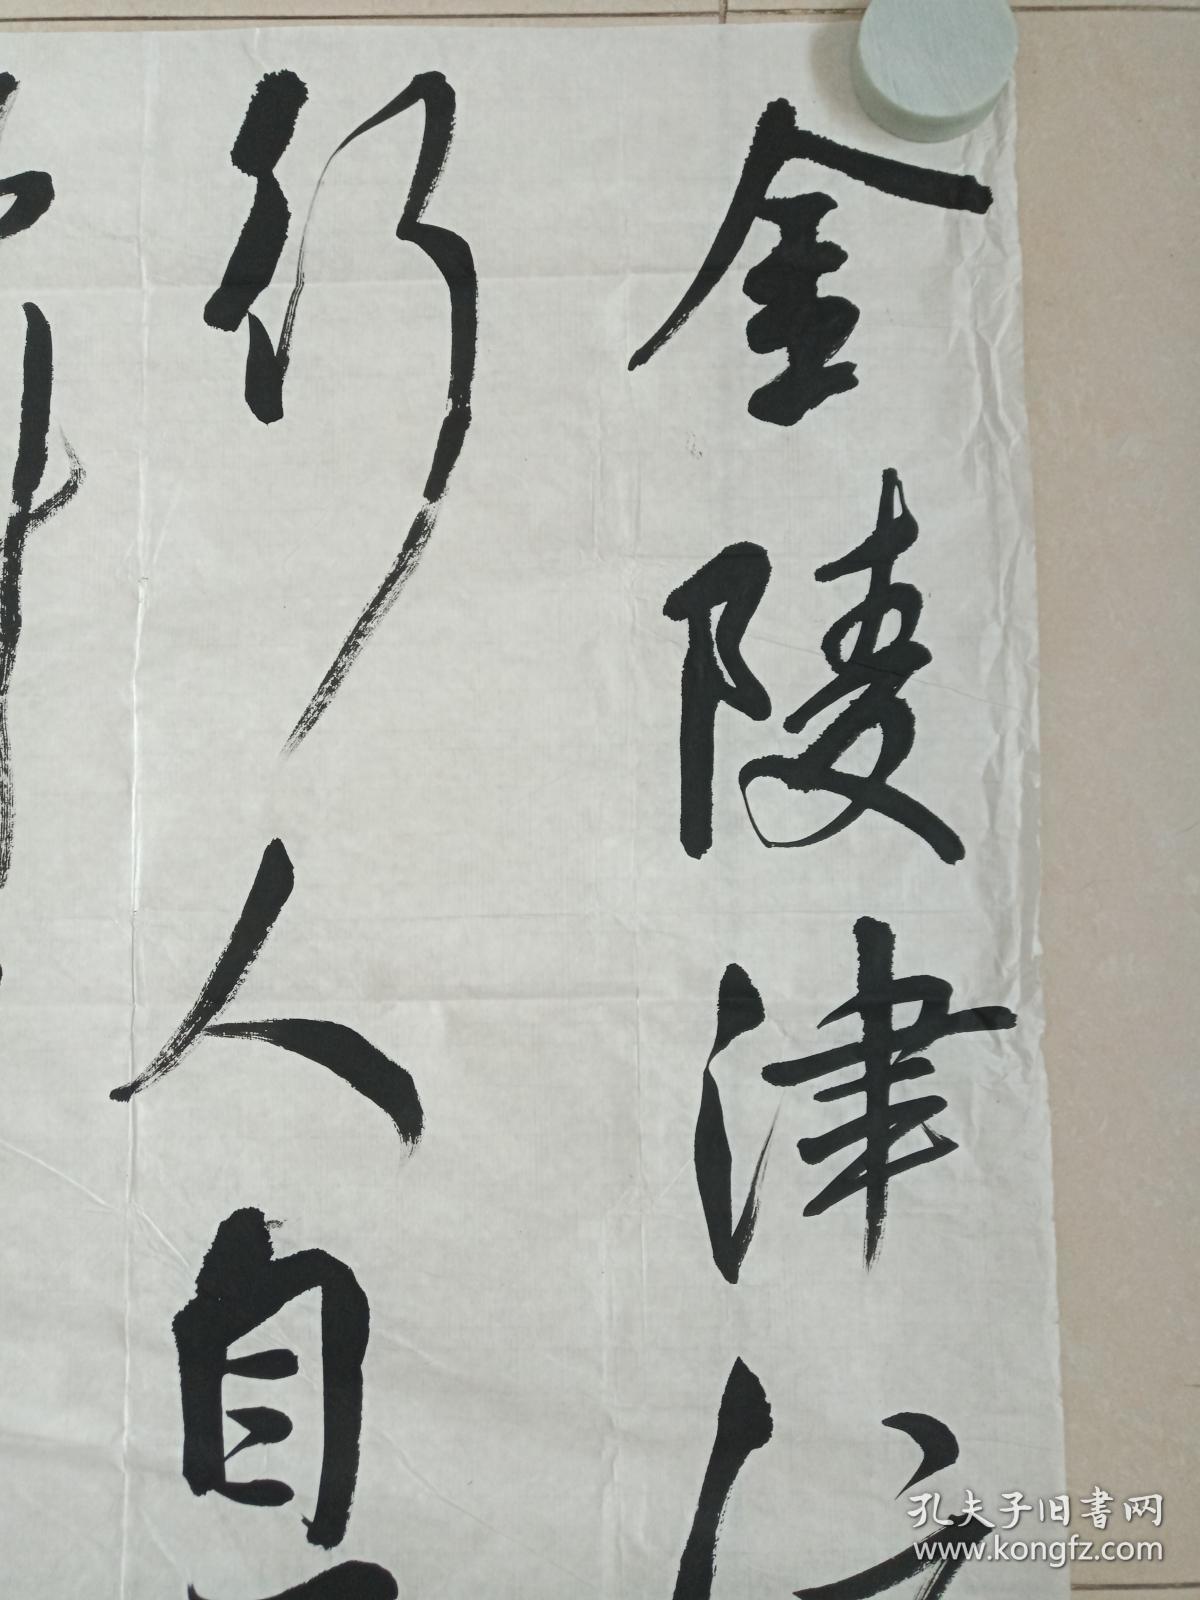 金陵津
行人自
孔夫子旧书网
www.kongfz.com